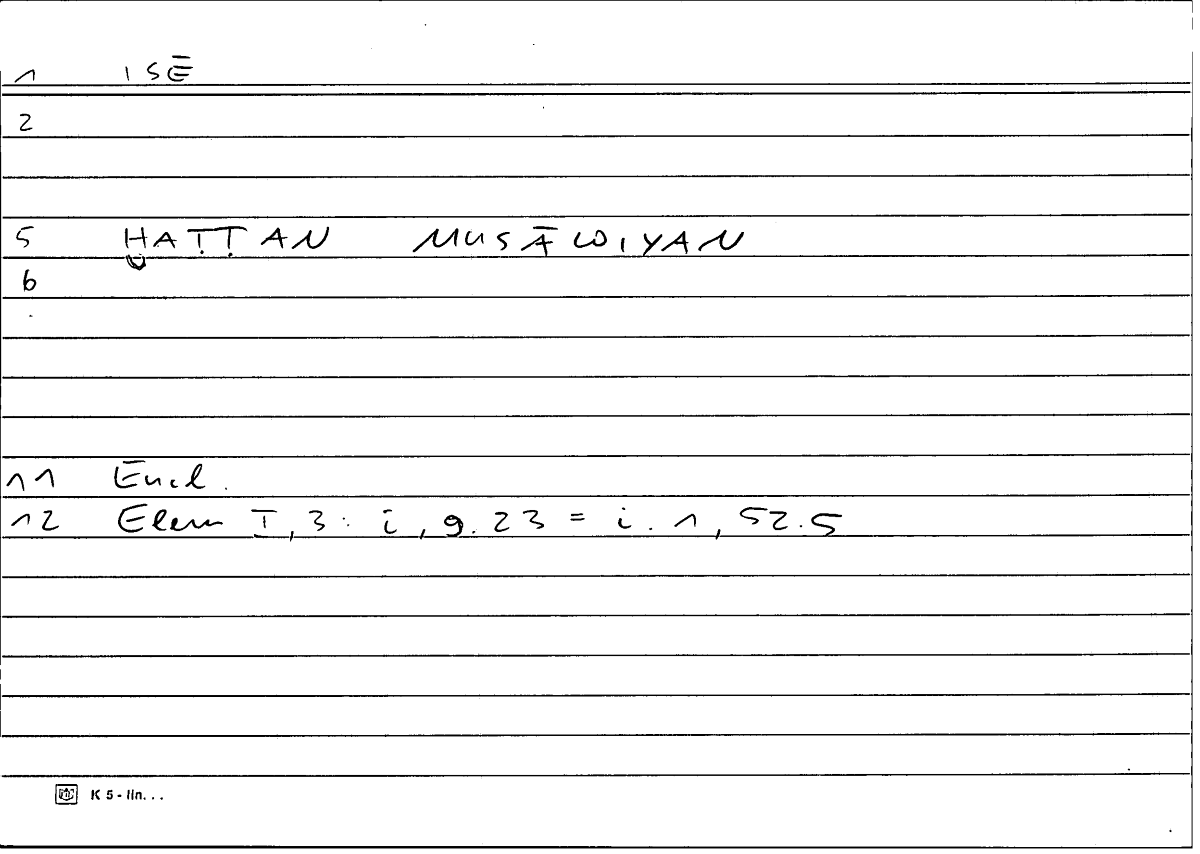 1 ISĒ
2
5 ḪAṬṬAN MUSĀWIYAN
6
11 Eucl.
12 Elem I,3: i,9.23 = i.1,52.5
K 5 - lin. . .